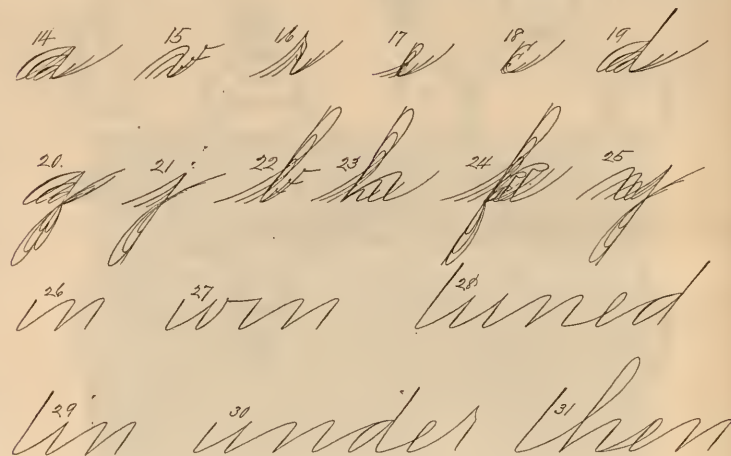 14 a 15 v 16 s 17 e 18 c 19 d
20 g 21 j 22 b 23 ha 24 25
26 in 27 win 28 tuned
29 tin 30 under 31 then